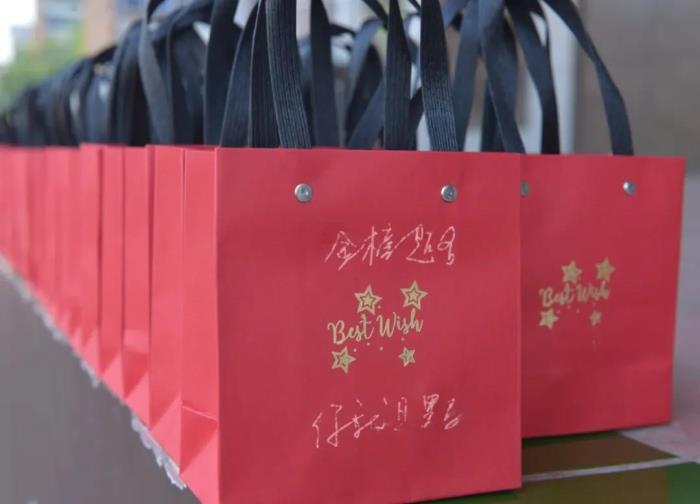 金榜题名
Best Wish
Best Wish